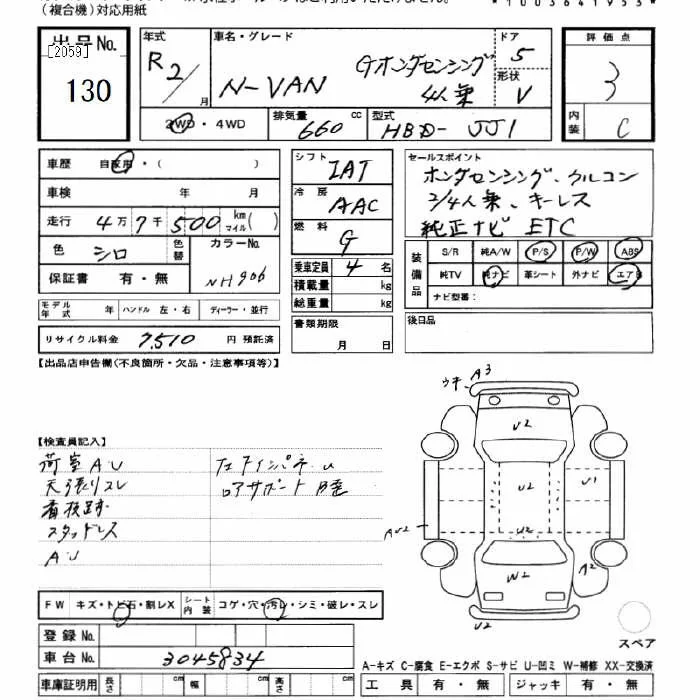 (複合機)対応用紙
*1003641953*
出品No.
[2059]
130
年式
R2/
月
車名・グレード
N-VAN
Gホンダセンシング
4人乗
ドア
5
形状
V
2WD・4WD
排気量 660 cc
型式 HBD-JJ1
評価点
3
内装
C
車歴 自家用・( )
車検 年 月
走行 4万7千500 km マイル( )
色 シロ 色替 カラーNo. NH906
保証書 有・無
モデル年式 年 ハンドル 左・右 ディーラー・並行
リサイクル料金 7,510 円 預託済
シフト IAT
冷房 AAC
燃料 G
乗車定員 4 名
積載量 kg
総重量 kg
書類期限
月 日
セールスポイント
ホンダセンシング、クルコン
2/4人乗、キーレス
純正ナビ ETC
装備品
S/R 純A/W P/S P/W ABS
純TV 純ナビ 革シート 外ナビ エアB
ナビ型番:
後日品
【出品店申告欄(不良箇所・欠品・注意事項等)】
【検査員記入】
荷室AU
天張りスレ
看板跡
スタッドレス
AU
左フインパネU
ロアサポート
ウキ A3
U2
U2
U1
U2
AU2
W2
A2
U2
FW キズ・トビ石・割レX
シート内装 コゲ・穴・汚レ・シミ・破レ・スレ
登録No.
車台No. 3045834
車庫証明用 長さ cm 幅 cm 高さ cm
スペア
A-キズ C-腐食 E-エクボ S-サビ U-凹ミ W-補修 XX-交換済
工具 有・無 ジャッキ 有・無